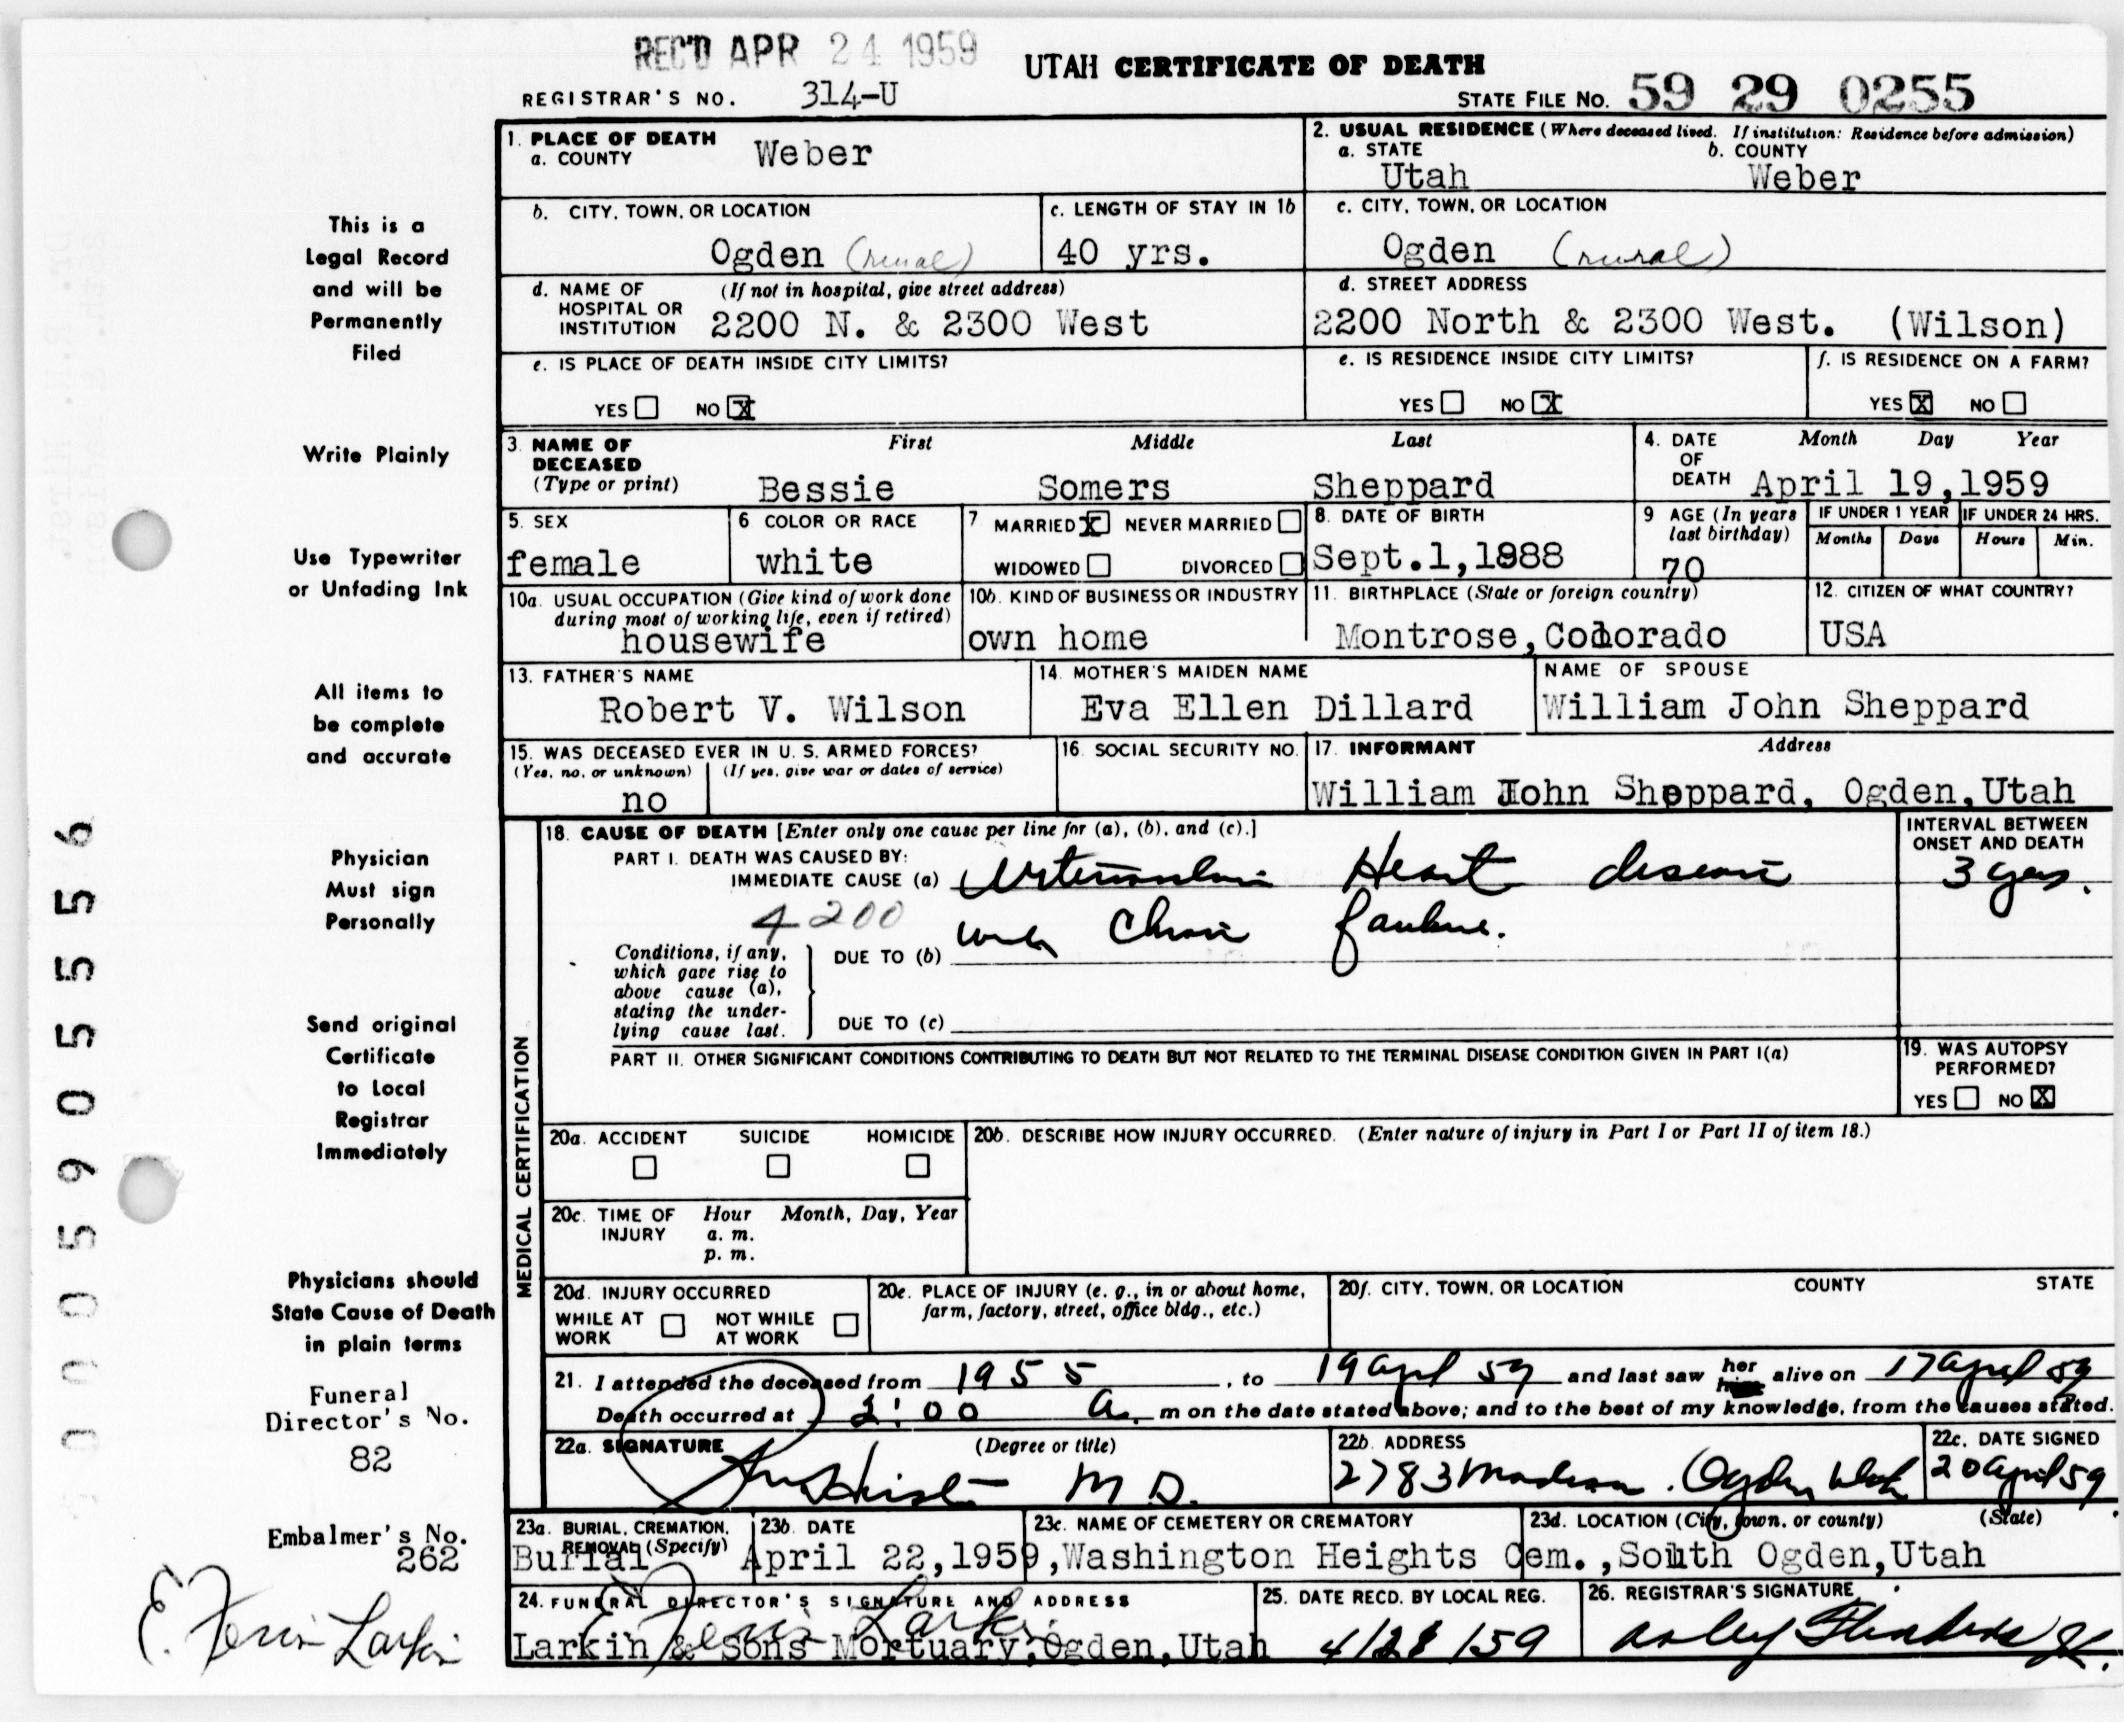 REC'D APR 24 1959
UTAH CERTIFICATE OF DEATH
REGISTRAR'S NO. 314-U
STATE FILE NO. 59 29 0255
This is a
Legal Record
and will be
Permanently
Filed
Write Plainly
Use Typewriter
or Unfading Ink
All items to
be complete
and accurate
Physician
Must sign
Personally
Send original
Certificate
to Local
Registrar
Immediately
Physicians should
State Cause of Death
in plain terms
Funeral
Director's No.
82
Embalmer's No.
262
E. Ferrin Larkin
1. PLACE OF DEATH
a. COUNTY Weber
2. USUAL RESIDENCE (Where deceased lived. If institution: Residence before admission)
a. STATE b. COUNTY
Utah Weber
b. CITY, TOWN, OR LOCATION
Ogden (rural)
c. LENGTH OF STAY IN 1b
40 yrs.
c. CITY, TOWN, OR LOCATION
Ogden (rural)
d. NAME OF HOSPITAL OR INSTITUTION (If not in hospital, give street address)
2200 N. & 2300 West
d. STREET ADDRESS
2200 North & 2300 West. (Wilson)
e. IS PLACE OF DEATH INSIDE CITY LIMITS?
YES NO X
e. IS RESIDENCE INSIDE CITY LIMITS?
YES NO X
f. IS RESIDENCE ON A FARM?
YES X NO
3. NAME OF DECEASED (Type or print)
First Middle Last
Bessie Somers Sheppard
4. DATE OF DEATH Month Day Year
April 19,1959
5. SEX
female
6 COLOR OR RACE
white
7 MARRIED X NEVER MARRIED
WIDOWED DIVORCED
8. DATE OF BIRTH
Sept.1,1888
9 AGE (In years last birthday)
70
IF UNDER 1 YEAR
Months Days
IF UNDER 24 HRS.
Hours Min.
10a. USUAL OCCUPATION (Give kind of work done during most of working life, even if retired)
housewife
10b. KIND OF BUSINESS OR INDUSTRY
own home
11. BIRTHPLACE (State or foreign country)
Montrose,Colorado
12. CITIZEN OF WHAT COUNTRY?
USA
13. FATHER'S NAME
Robert V. Wilson
14. MOTHER'S MAIDEN NAME
Eva Ellen Dillard
NAME OF SPOUSE
William John Sheppard
15. WAS DECEASED EVER IN U. S. ARMED FORCES?
(Yes, no, or unknown) (If yes, give war or dates of service)
no
16. SOCIAL SECURITY NO.
17. INFORMANT Address
William John Sheppard, Ogden,Utah
MEDICAL CERTIFICATION
18. CAUSE OF DEATH [Enter only one cause per line for (a), (b), and (c).]
PART I. DEATH WAS CAUSED BY:
IMMEDIATE CAUSE (a) Heart disease
4200
Conditions, if any, which gave rise to above cause (a), stating the underlying cause last.
DUE TO (b)
DUE TO (c)
INTERVAL BETWEEN ONSET AND DEATH
3 yrs.
PART II. OTHER SIGNIFICANT CONDITIONS CONTRIBUTING TO DEATH BUT NOT RELATED TO THE TERMINAL DISEASE CONDITION GIVEN IN PART I(a)
19. WAS AUTOPSY PERFORMED?
YES NO X
20a. ACCIDENT SUICIDE HOMICIDE
20b. DESCRIBE HOW INJURY OCCURRED. (Enter nature of injury in Part I or Part II of item 18.)
20c. TIME OF INJURY Hour Month, Day, Year
a. m.
p. m.
20d. INJURY OCCURRED
WHILE AT WORK NOT WHILE AT WORK
20e. PLACE OF INJURY (e. g., in or about home, farm, factory, street, office bldg., etc.)
20f. CITY, TOWN, OR LOCATION COUNTY STATE
21. I attended the deceased from 1955, to 19 April 59 and last saw her alive on 17 April 59
Death occurred at 2:00 A. m on the date stated above; and to the best of my knowledge, from the causes stated.
22a. SIGNATURE (Degree or title)
M.D.
22b. ADDRESS
2783 Madison. Ogden, Utah
22c. DATE SIGNED
20 April 59
23a. BURIAL, CREMATION, REMOVAL (Specify)
Burial
23b. DATE
April 22,1959
23c. NAME OF CEMETERY OR CREMATORY
,Washington Heights Cem.
23d. LOCATION (City, town, or county) (State)
,South Ogden,Utah
24. FUNERAL DIRECTOR'S SIGNATURE AND ADDRESS
E Ferrin Larkin
Larkin & Sons Mortuary,Ogden,Utah
25. DATE RECD. BY LOCAL REG.
26. REGISTRAR'S SIGNATURE